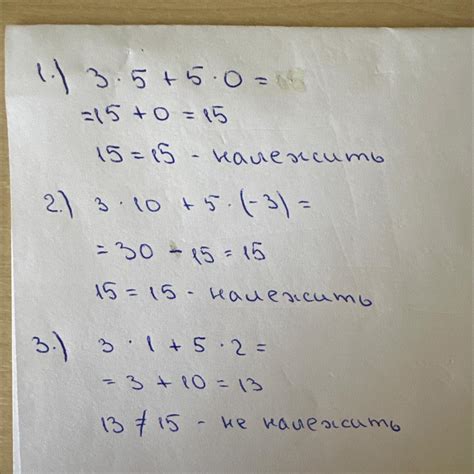 1.) 3 · 5 + 5 · 0 =
= 15 + 0 = 15
15 = 15 - належить
2.) 3 · 10 + 5 · (-3) =
= 30 - 15 = 15
15 = 15 - належить
3.) 3 · 1 + 5 · 2 =
= 3 + 10 = 13
13 ≠ 15 - не належить